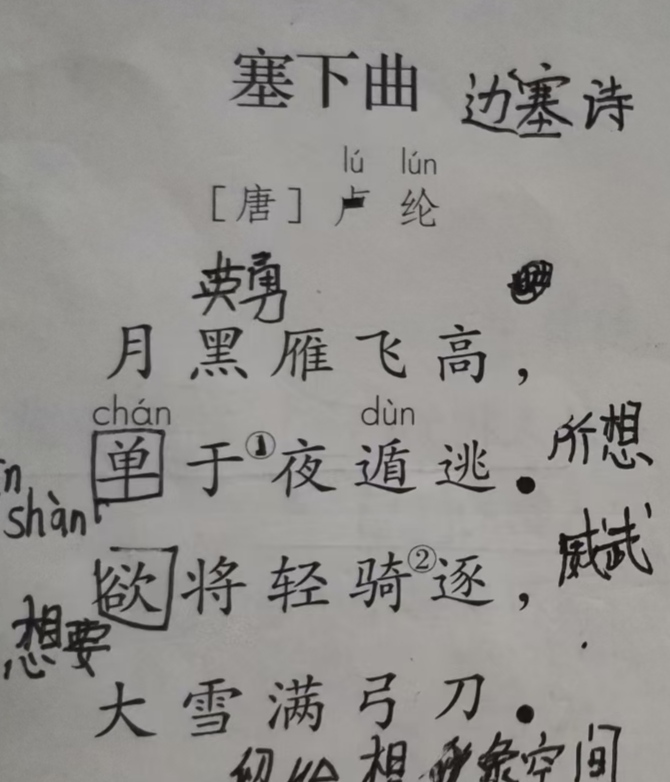 塞下曲 边塞诗
lú lún
[唐] 卢 纶
英勇
月黑雁飞高，
chán dùn
单于①夜遁逃。 所想
shàn
欲将轻骑②逐， 威武
想要
大雪满弓刀。
空间